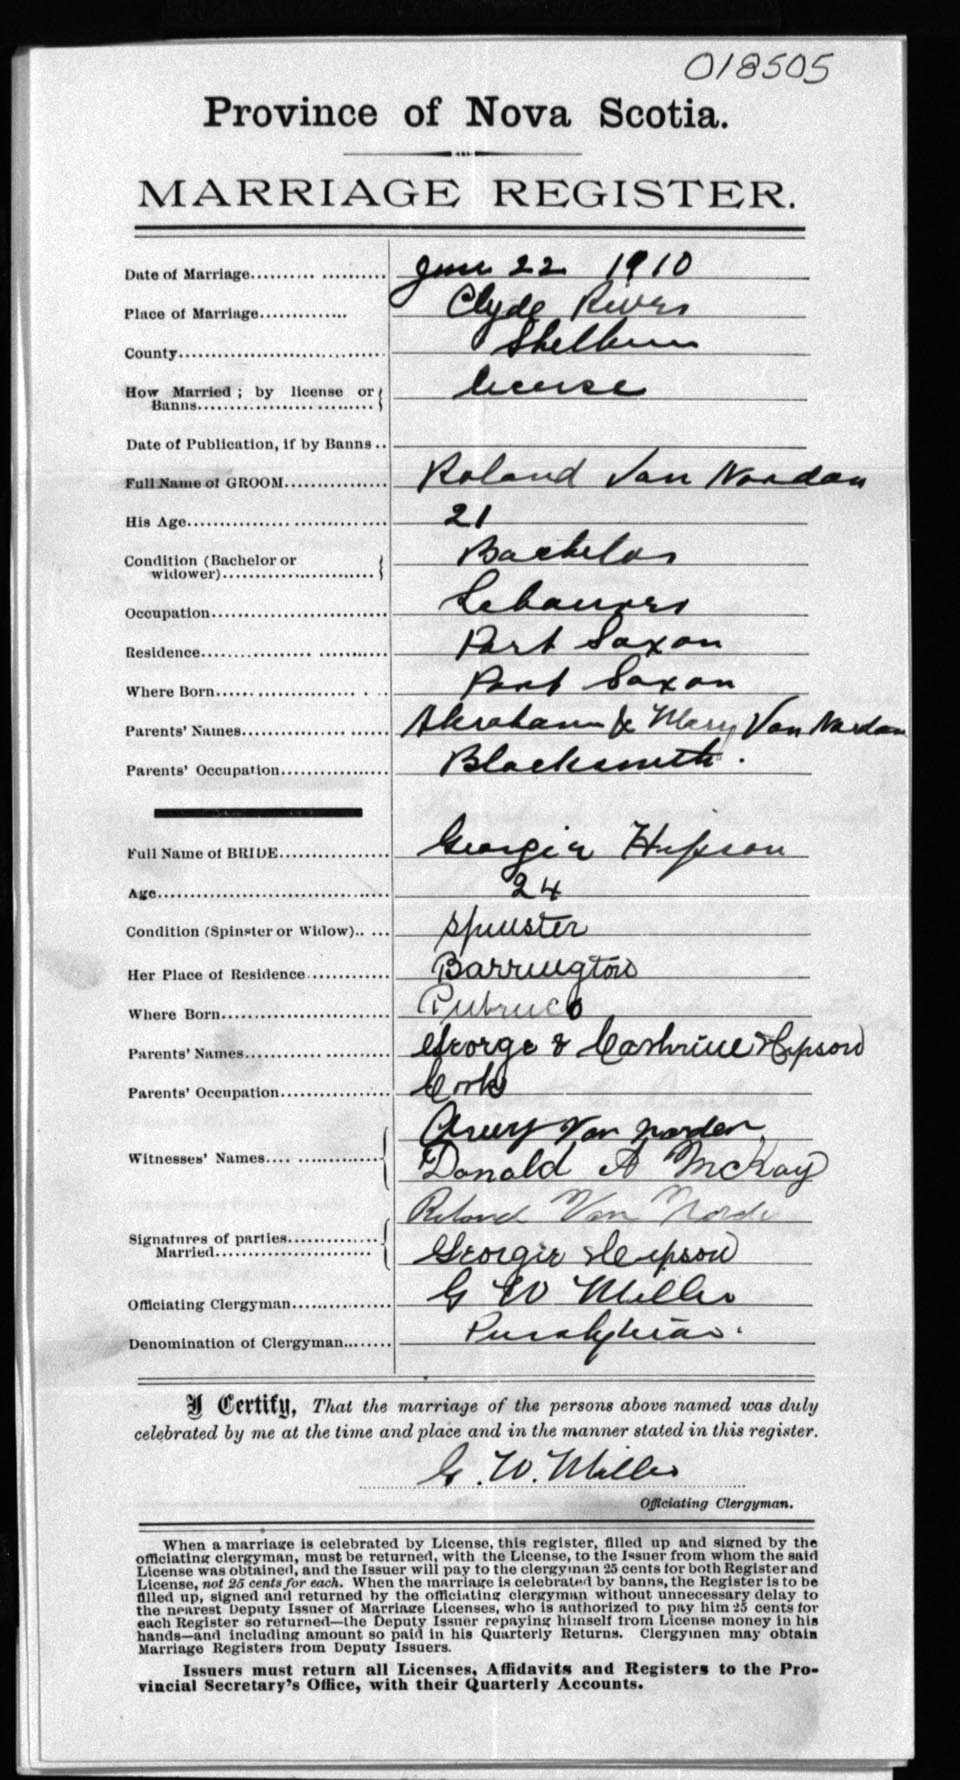 018505
Province of Nova Scotia.
MARRIAGE REGISTER.
Date of Marriage.................... June 22 1910
Place of Marriage.............. Clyde River
County................................ Shelburn
How Married; by license or
Banns........................ license
Date of Publication, if by Banns ..
Full Name of GROOM................ Roland Van Nordan
His Age............................... 21
Condition (Bachelor or
widower)........................ Bachelor
Occupation............................ Labourer
Residence............................. Port Saxon
Where Born........................ Port Saxon
Parents' Names...................... Abraham & Mary Van Nordan
Parents' Occupation................ Blacksmith.
Full Name of BRIDE................ Georgia Hipson
Age..................................... 24
Condition (Spinster or Widow)..... Spinster
Her Place of Residence............ Barrington
Where Born.......................... Pubnico
Parents' Names...................... George & Cathrine Hipson
Parents' Occupation................ Cook
Witnesses' Names.................. Van Norden
Donald A McKay
Signatures of parties.............. Roland Van Norde
Married...................... Georgie Hipson
Officiating Clergyman.............. G W Miller
Denomination of Clergyman........ Presbyterian.
I Certify, That the marriage of the persons above named was duly
celebrated by me at the time and place and in the manner stated in this register.
G. W. Miller
Officiating Clergyman.
When a marriage is celebrated by License, this register, filled up and signed by the
officiating clergyman, must be returned, with the License, to the Issuer from whom the said
License was obtained, and the Issuer will pay to the clergyman 25 cents for both Register and
License, not 25 cents for each. When the marriage is celebrated by banns, the Register is to be
filled up, signed and returned by the officiating clergyman without unnecessary delay to
the nearest Deputy Issuer of Marriage Licenses, who is authorized to pay him 25 cents for
each Register so returned—the Deputy Issuer repaying himself from License money in his
hands—and including amount so paid in his Quarterly Returns. Clergymen may obtain
Marriage Registers from Deputy Issuers.
Issuers must return all Licenses, Affidavits and Registers to the Pro-
vincial Secretary's Office, with their Quarterly Accounts.